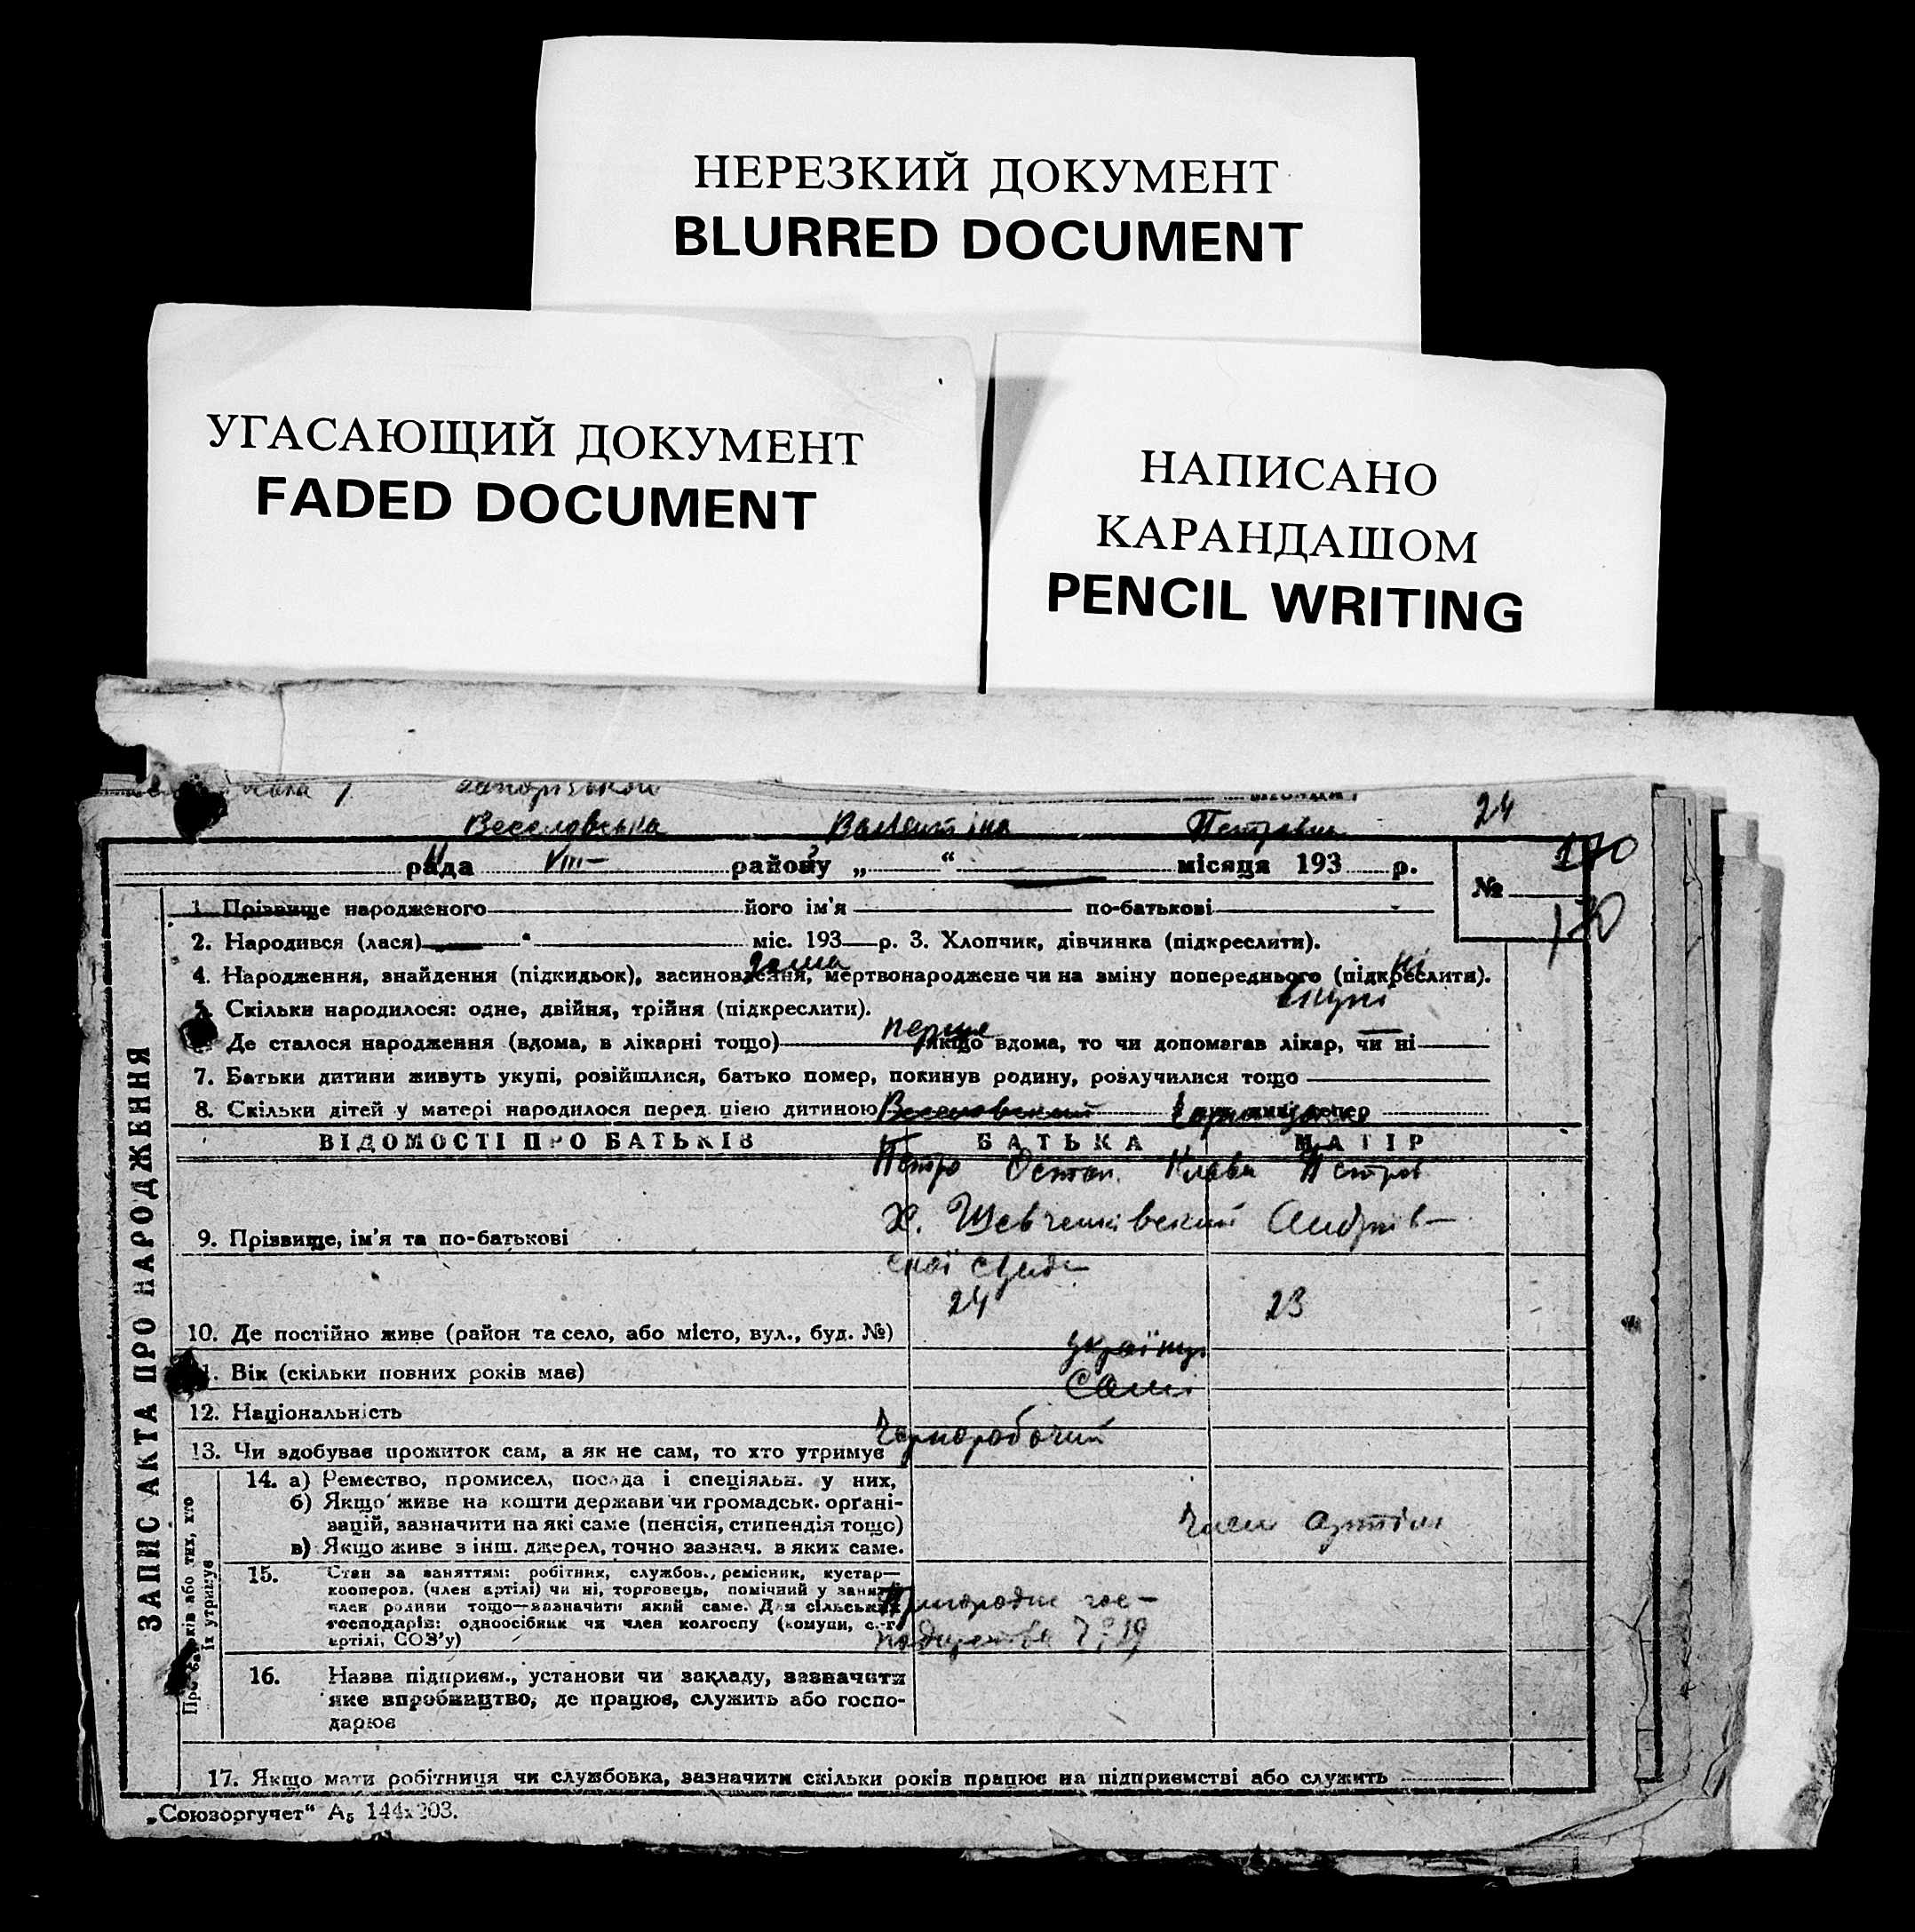 НЕРЕЗКИЙ ДОКУМЕНТ
BLURRED DOCUMENT
УГАСАЮЩИЙ ДОКУМЕНТ
FADED DOCUMENT
НАПИСАНО
КАРАНДАШОМ
PENCIL WRITING
24
Веселовська Валентіна
170
рада VIII– району „ “ місяця 193 р.
№
170
1. Прізвище народженого його ім'я по-батькові
2. Народився (лася) “ міс. 193 р. 3. Хлопчик, дівчинка (підкреслити).
дома
ні
4. Народження, знайдення (підкидьок), засиновлення, мертвонароджене чи на зміну попереднього (підкреслити).
вкупі
5. Скільки народилося: одне, двійня, трійня (підкреслити).
перше
Де сталося народження (вдома, в лікарні тощо) якщо вдома, то чи допомагав лікар, чи ні
7. Батьки дитини живуть укупі, розійшлися, батько помер, покинув родину, розлучилися тощо
8. Скільки дітей у матері народилося перед цією дитиною
Веселовський
ВІДОМОСТІ ПРО БАТЬКІВ БАТЬКА МАТІР
Петро Остап. Клава Петров
Х. Шевченківский Андріїв–
9. Прізвище, ім'я та по-батькові
ської
24 23
10. Де постійно живе (район та село, або місто, вул., буд. №)
українці
11. Вік (скільки повних років має)
Самі
12. Національність
Чорноробочий
13. Чи здобуває прожиток сам, а як не сам, то хто утримує
14. а) Ремество, промисел, посада і спеціяльн. у них,
б) Якщо живе на кошти держави чи громадськ. орґані-
зацій, зазначити на які саме (пенсія, стипендія тощо)
Член артілі
в) Якщо живе з інш. джерел, точно зазнач. в яких саме.
15. Стан за заняттям: робітник, службов., ремісник, кустар—
кооперов. (член артілі) чи ні, торговець, помічний у занятті
член родини тощо—зазначити який саме. Для сільських
господарів: одноосібник чи член колгоспу (комуни, с.-г.
артілі, СОЗ'у)
Пригородне гос–
подарства
16. Назва підприєм., установи чи закладу, зазначити
яке виробництво, де працює, служить або госпо-
дарює
17. Якщо мати робітниця чи службовка, зазначити скільки років працює на підприємстві або служить
„Союзоргучет“ А₅ 144х203.
ЗАПИС АКТА ПРО НАРОДЖЕННЯ
Про батьків або тих, хто
їх утримує